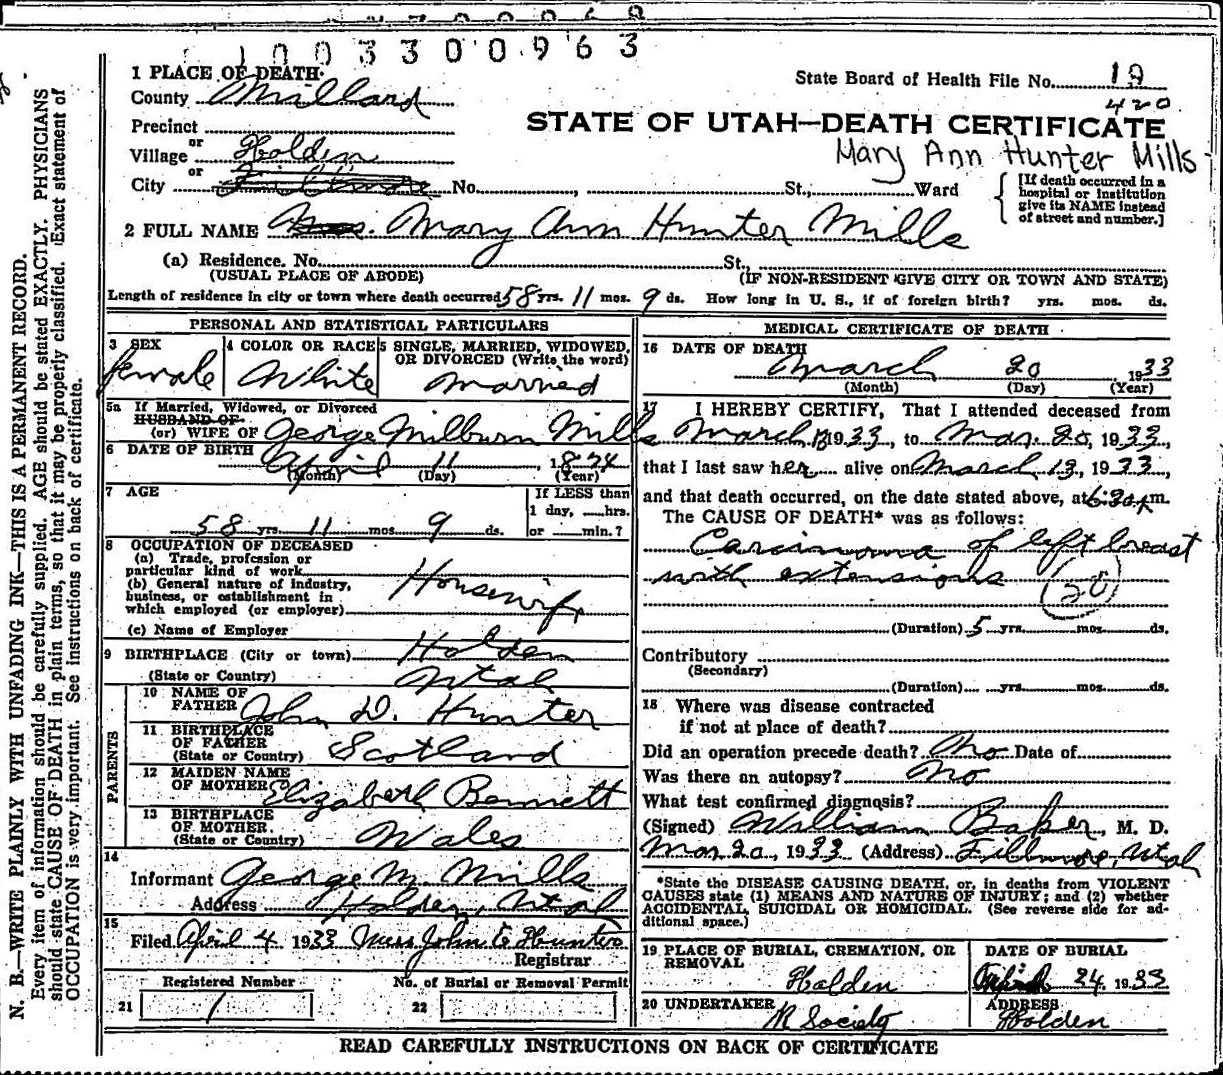 1003300963
1 PLACE OF DEATH
State Board of Health File No. 19
County Millard
420
Precinct
STATE OF UTAH—DEATH CERTIFICATE
or
Village Holden
Mary Ann Hunter Mills
or
City Fillmore No. , St., Ward
[If death occurred in a hospital or institution give its NAME instead of street and number.]
2 FULL NAME Mrs. Mary Ann Hunter Mills
(a) Residence. No. St.,
(USUAL PLACE OF ABODE) (IF NON-RESIDENT GIVE CITY OR TOWN AND STATE)
Length of residence in city or town where death occurred 58 yrs. 11 mos. 9 ds. How long in U. S., if of foreign birth? yrs. mos. ds.
PERSONAL AND STATISTICAL PARTICULARS
3 SEX
female
4 COLOR OR RACE
White
5 SINGLE, MARRIED, WIDOWED, OR DIVORCED (Write the word)
Married
5a If Married, Widowed, or Divorced
HUSBAND OF
(or) WIFE OF George Milburn Mills
6 DATE OF BIRTH April 11, 1874
(Month) (Day) (Year)
7 AGE
58 yrs. 11 mos. 9 ds.
If LESS than
1 day, hrs.
or min.?
8 OCCUPATION OF DECEASED
(a) Trade, profession or
particular kind of work
(b) General nature of industry,
business, or establishment in
which employed (or employer) Housewife
(c) Name of Employer
9 BIRTHPLACE (City or town) Holden
(State or Country) Utah
PARENTS
10 NAME OF
FATHER John D. Hunter
11 BIRTHPLACE
OF FATHER
(State or Country) Scotland
12 MAIDEN NAME
OF MOTHER Elizabeth Bennett
13 BIRTHPLACE
OF MOTHER.
(State or Country) Wales
14
Informant George M. Mills
Address Holden, Utah
15
Filed April 4 1933 Miss John E Hunter
Registrar
Registered Number
21 1
No. of Burial or Removal Permit
22
MEDICAL CERTIFICATE OF DEATH
16 DATE OF DEATH
March 20 1933
(Month) (Day) (Year)
17 I HEREBY CERTIFY, That I attended deceased from
March 13 1933, to Mar. 20, 1933,
that I last saw her alive on March 13, 1933,
and that death occurred, on the date stated above, at 6:30 m.
The CAUSE OF DEATH* was as follows:
Carcinoma of left breast
with extensions
(20)
(Duration) 5 yrs. mos. ds.
Contributory
(Secondary)
(Duration) yrs. mos. ds.
18 Where was disease contracted
if not at place of death?
Did an operation precede death? No Date of
Was there an autopsy? No
What test confirmed diagnosis?
(Signed) William Baker, M. D.
Mar 20, 1933 (Address) Fillmore, Utah
*State the DISEASE CAUSING DEATH, or, in deaths from VIOLENT
CAUSES state (1) MEANS AND NATURE OF INJURY; and (2) whether
ACCIDENTAL, SUICIDAL OR HOMICIDAL. (See reverse side for ad-
ditional space.)
19 PLACE OF BURIAL, CREMATION, OR
REMOVAL
Holden
DATE OF BURIAL
24 1933
20 UNDERTAKER
R Society
ADDRESS
Holden
READ CAREFULLY INSTRUCTIONS ON BACK OF CERTIFICATE
N. B.—WRITE PLAINLY WITH UNFADING INK—THIS IS A PERMANENT RECORD.
Every item of information should be carefully supplied. AGE should be stated EXACTLY. PHYSICIANS
should state CAUSE OF DEATH in plain terms, so that it may be properly classified. Exact statement of
OCCUPATION is very important. See instructions on back of certificate.